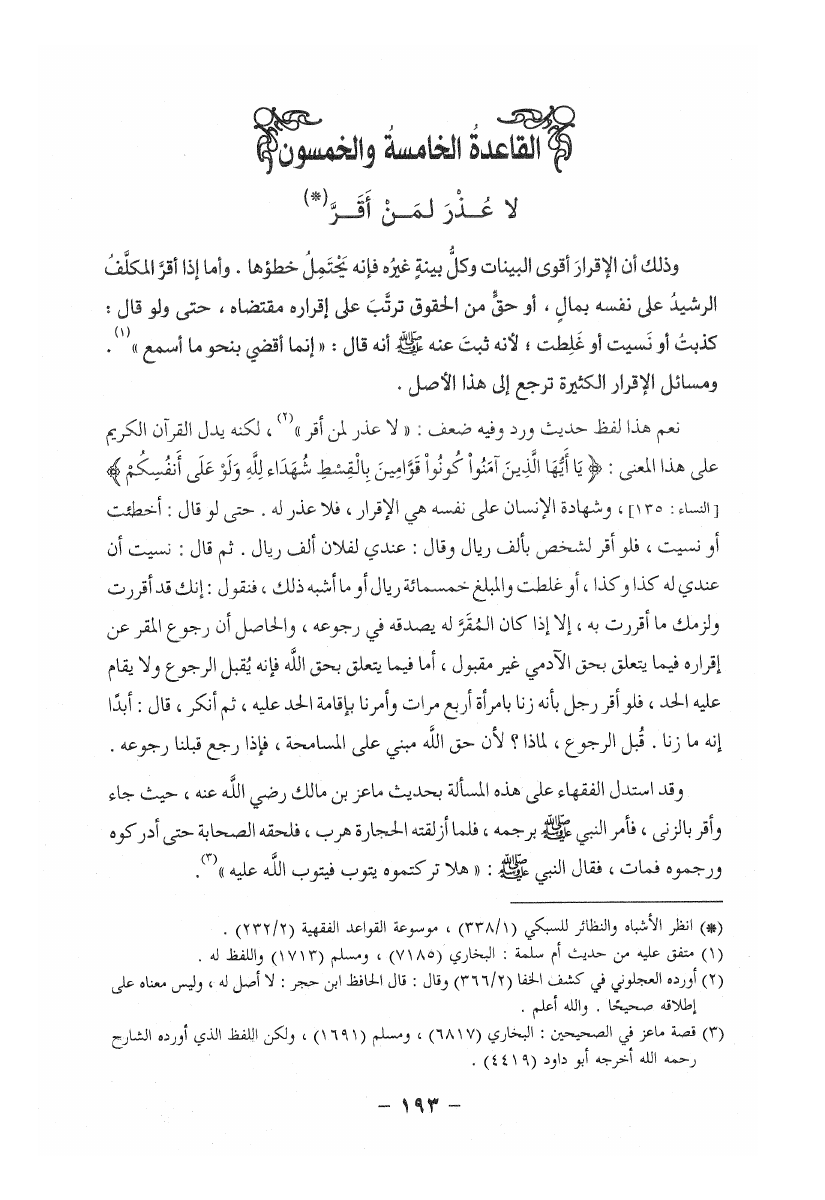 القاعدةُ الخامسةُ والخمسون
لا عُـــذْرَ لـمَـــنْ أَقَـــرَّ(*)
وذلك أن الإقرارَ أقوى البينات وكلُّ بينةٍ غيرُه فإنه يَحْتَمِلُ خطؤها . وأما إذا أقرَّ المكلَّفُ
الرشيدُ على نفسه بمالٍ ، أو حقٍّ من الحقوق ترتَّبَ على إقراره مقتضاه ، حتى ولو قال :
كذبتُ أو نَسيت أو غَلِطت ؛ لأنه ثبتَ عنه ﷺ أنه قال : « إنما أقضي بنحو ما أسمع »(١) .
ومسائل الإقرار الكثيرة ترجع إلى هذا الأصل .
نعم هذا لفظ حديث ورد وفيه ضعف : « لا عذر لمن أقر »(٢) ، لكنه يدل القرآن الكريم
على هذا المعنى : ﴿ يَا أَيُّهَا الَّذِينَ آمَنُواْ كُونُواْ قَوَّامِينَ بِالْقِسْطِ شُهَدَاء لِلَّهِ وَلَوْ عَلَى أَنفُسِكُمْ ﴾
[ النساء : ١٣٥] ، وشهادة الإنسان على نفسه هي الإقرار ، فلا عذر له . حتى لو قال : أخطئت
أو نسيت ، فلو أقر لشخص بألف ريال وقال : عندي لفلان ألف ريال . ثم قال : نسيت أن
عندي له كذا وكذا ، أو غلطت والمبلغ خمسمائة ريال أو ما أشبه ذلك ، فنقول : إنك قد أقررت
ولزمك ما أقررت به ، إلا إذا كان المُقَرَّ له يصدقه في رجوعه ، والحاصل أن رجوع المقر عن
إقراره فيما يتعلق بحق الآدمي غير مقبول ، أما فيما يتعلق بحق اللَّه فإنه يُقبل الرجوع ولا يقام
عليه الحد ، فلو أقر رجل بأنه زنا بامرأة أربع مرات وأمرنا بإقامة الحد عليه ، ثم أنكر ، قال : أبدًا
إنه ما زنا . قُبل الرجوع ، لماذا ؟ لأن حق اللَّه مبني على المسامحة ، فإذا رجع قبلنا رجوعه .
وقد استدل الفقهاء على هذه المسألة بحديث ماعز بن مالك رضي اللَّه عنه ، حيث جاء
وأقر بالزنى ، فأمر النبي ﷺ برجمه ، فلما أزلقته الحجارة هرب ، فلحقه الصحابة حتى أدركوه
ورجموه فمات ، فقال النبي ﷺ : « هلا تركتموه يتوب فيتوب اللَّه عليه »(٣).
(*) انظر الأشباه والنظائر للسبكي (٣٣٨/١) ، موسوعة القواعد الفقهية (٢٣٢/٢) .
(١) متفق عليه من حديث أم سلمة : البخاري (٧١٨٥) ، ومسلم (١٧١٣) واللفظ له .
(٢) أورده العجلوني في كشف الخفا (٣٦٦/٢) وقال : قال الحافظ ابن حجر : لا أصل له ، وليس معناه على
إطلاقه صحيحًا . والله أعلم .
(٣) قصة ماعز في الصحيحين : البخاري (٦٨١٧) ، ومسلم (١٦٩١) ، ولكن اللفظ الذي أورده الشارح
رحمه الله أخرجه أبو داود (٤٤١٩) .
– ١٩٣ –